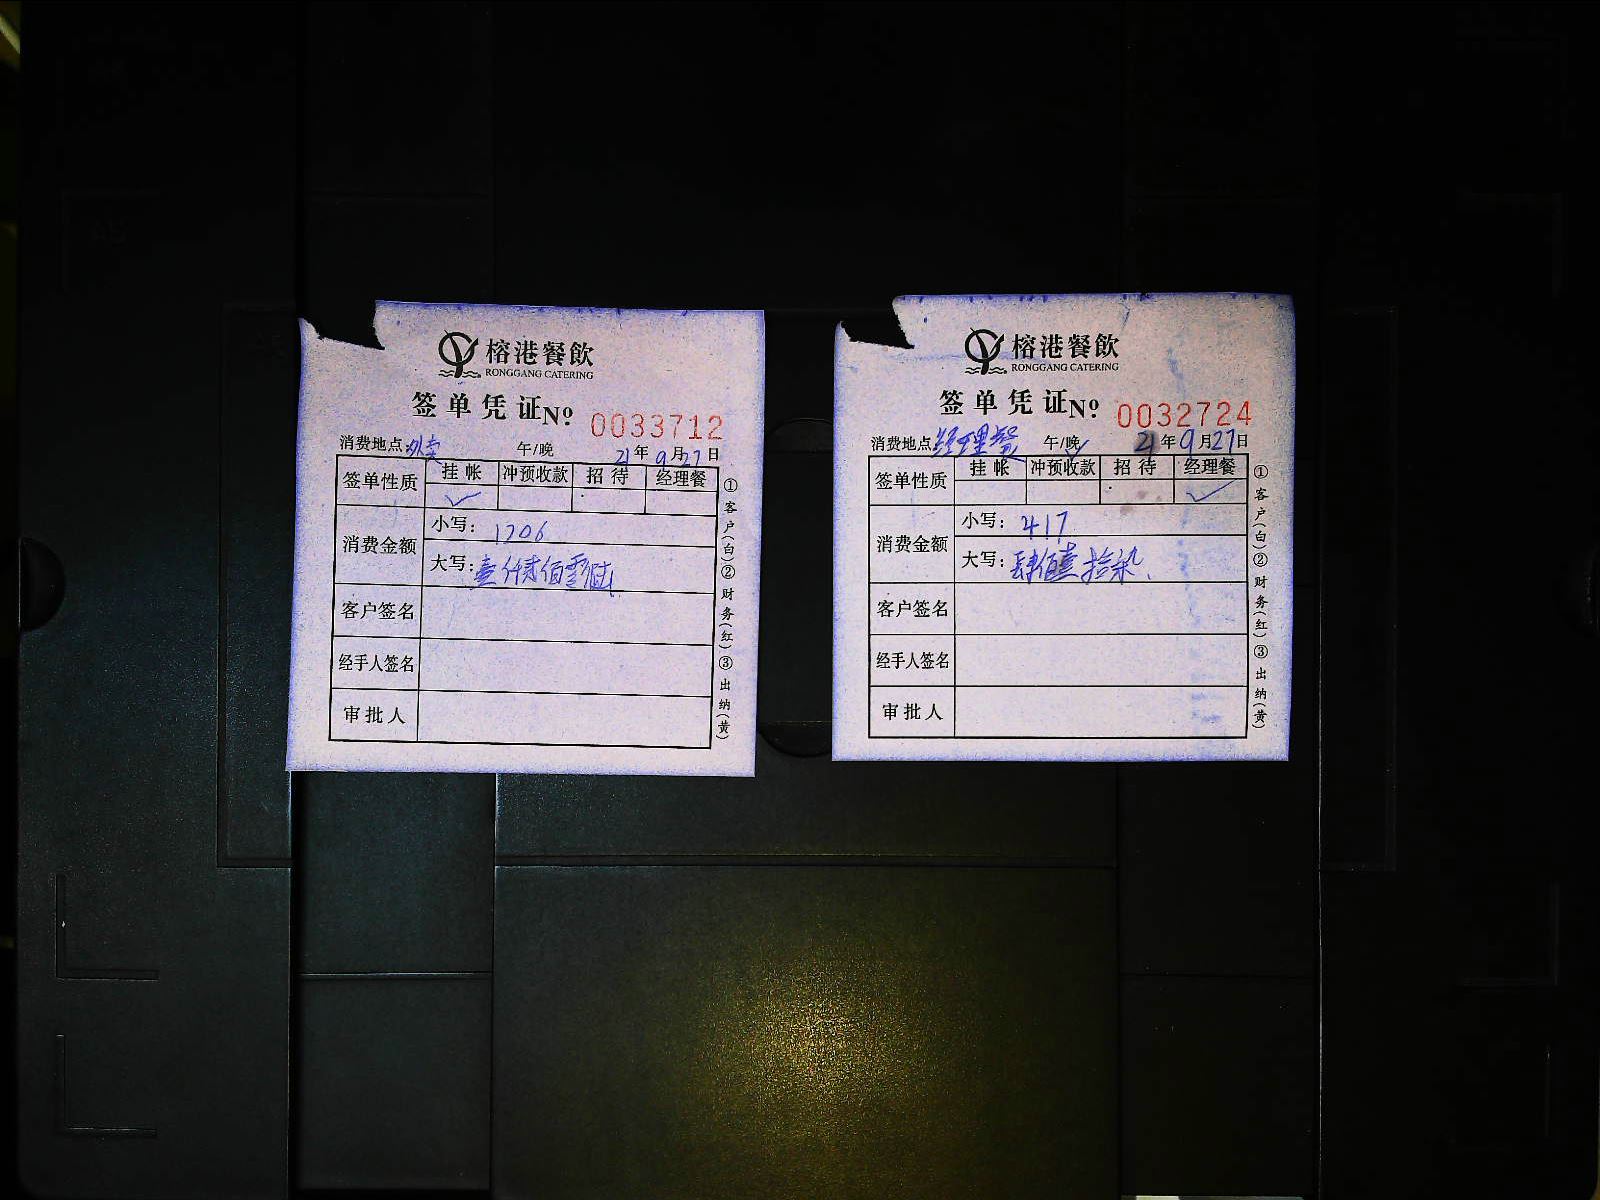 榕港餐飲
RONGGANG CATERING
签单凭证№ 0033712
消费地点:外卖 午/晚 21年9月27日
签单性质 挂帐 冲预收款 招待 经理餐
✓
消费金额 小写: 1206
大写: 壹仟贰佰零陆
客户签名
经手人签名
审批人
①客户(白)②财务(红)③出纳(黄)
榕港餐飲
RONGGANG CATERING
签单凭证№ 0032724
消费地点:经理餐 午/晚✓ 21年9月27日
签单性质 挂帐 冲预收款 招待 经理餐
✓
消费金额 小写: 417
大写: 肆佰壹拾柒
客户签名
经手人签名
审批人
①客户(白)②财务(红)③出纳(黄)